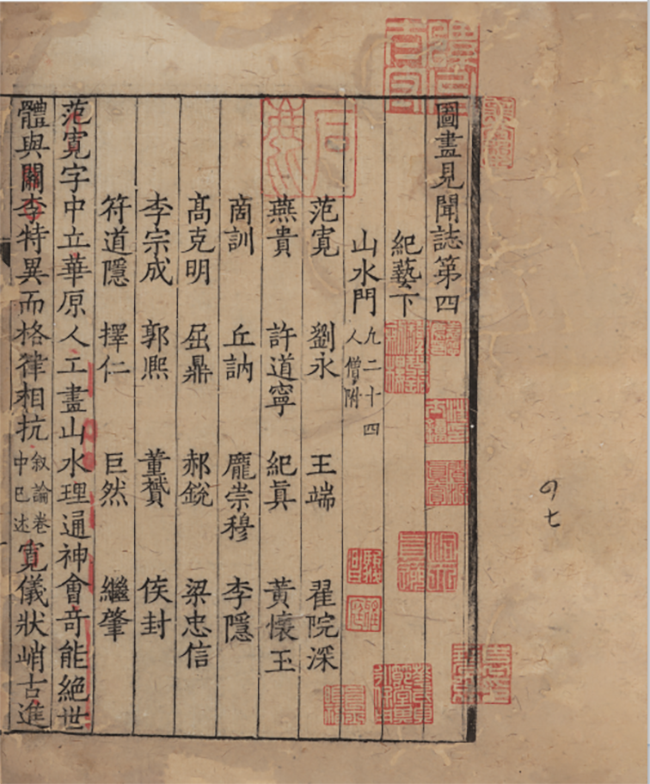 圖畫見聞誌第四
紀藝下
山水門 凡二十四人 僧附
范寬 劉永 王端 翟院深
燕貴 許道寧 紀眞 黃懷玉
商訓 丘訥 龐崇穆 李隱
髙克明 屈鼎 郝銳 梁忠信
李宗成 郭熈 董贇 侯封
符道隱 擇仁 巨然 繼肇
范寬字中立華原人工畫山水理通神會奇能絕世
體與關李特異而格律相抗叙論卷中已述寬儀狀峭古進